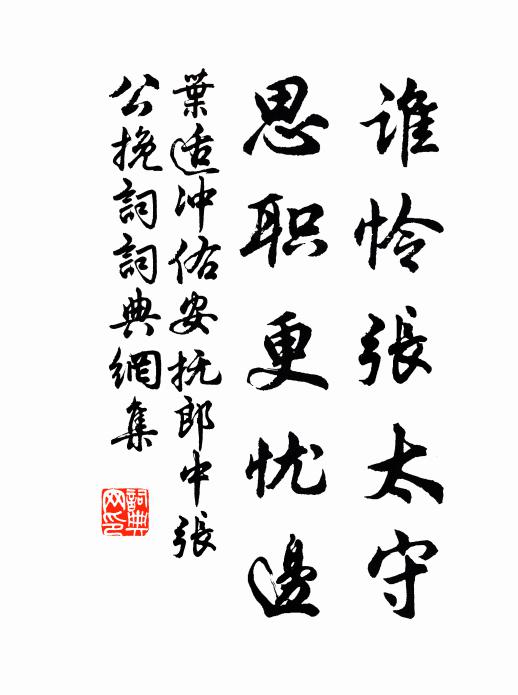 谁怜張太守
思职更忧邊
葉适冲佑安抚郎中張
公挽詞詞典網集
詞典网印